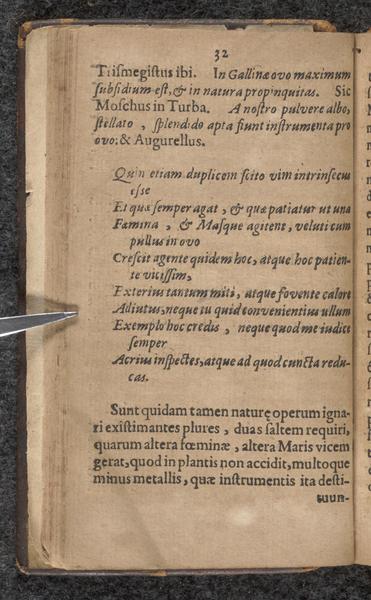 32
Trismegistus ibi. In Gallinæ ovo maximum
subsidium est, & in natura propinquitas. Sic
Moschus in Turba. A nostro pulvere albo,
stellato, splendido apta fiunt instrumenta pro
ovo: & Augurellus.
Quin etiam duplicem scito vim intrinsecus
esse
Et quæ semper agat, & quæ patiatur ut una
Fæmina, & Masque agitent, veluti cum
pullus in ovo
Crescit agente quidem hoc, atque hoc patien-
te vicissim,
Exterius tantum miti, atque fovente calore
Adiutus, neque tu quid convenientius ullum
Exemplo hoc credis, neque quod me iudice
semper
Acrius inspectes, atque ad quod cuncta redu-
cas.
Sunt quidam tamen naturę operum igna-
ri existimantes plures, duas saltem requiri,
quarum altera fœminæ, altera Maris vicem
gerat, quod in plantis non accidit, multoque
minus metallis, quæ instrumentis ita desti-
tuun-